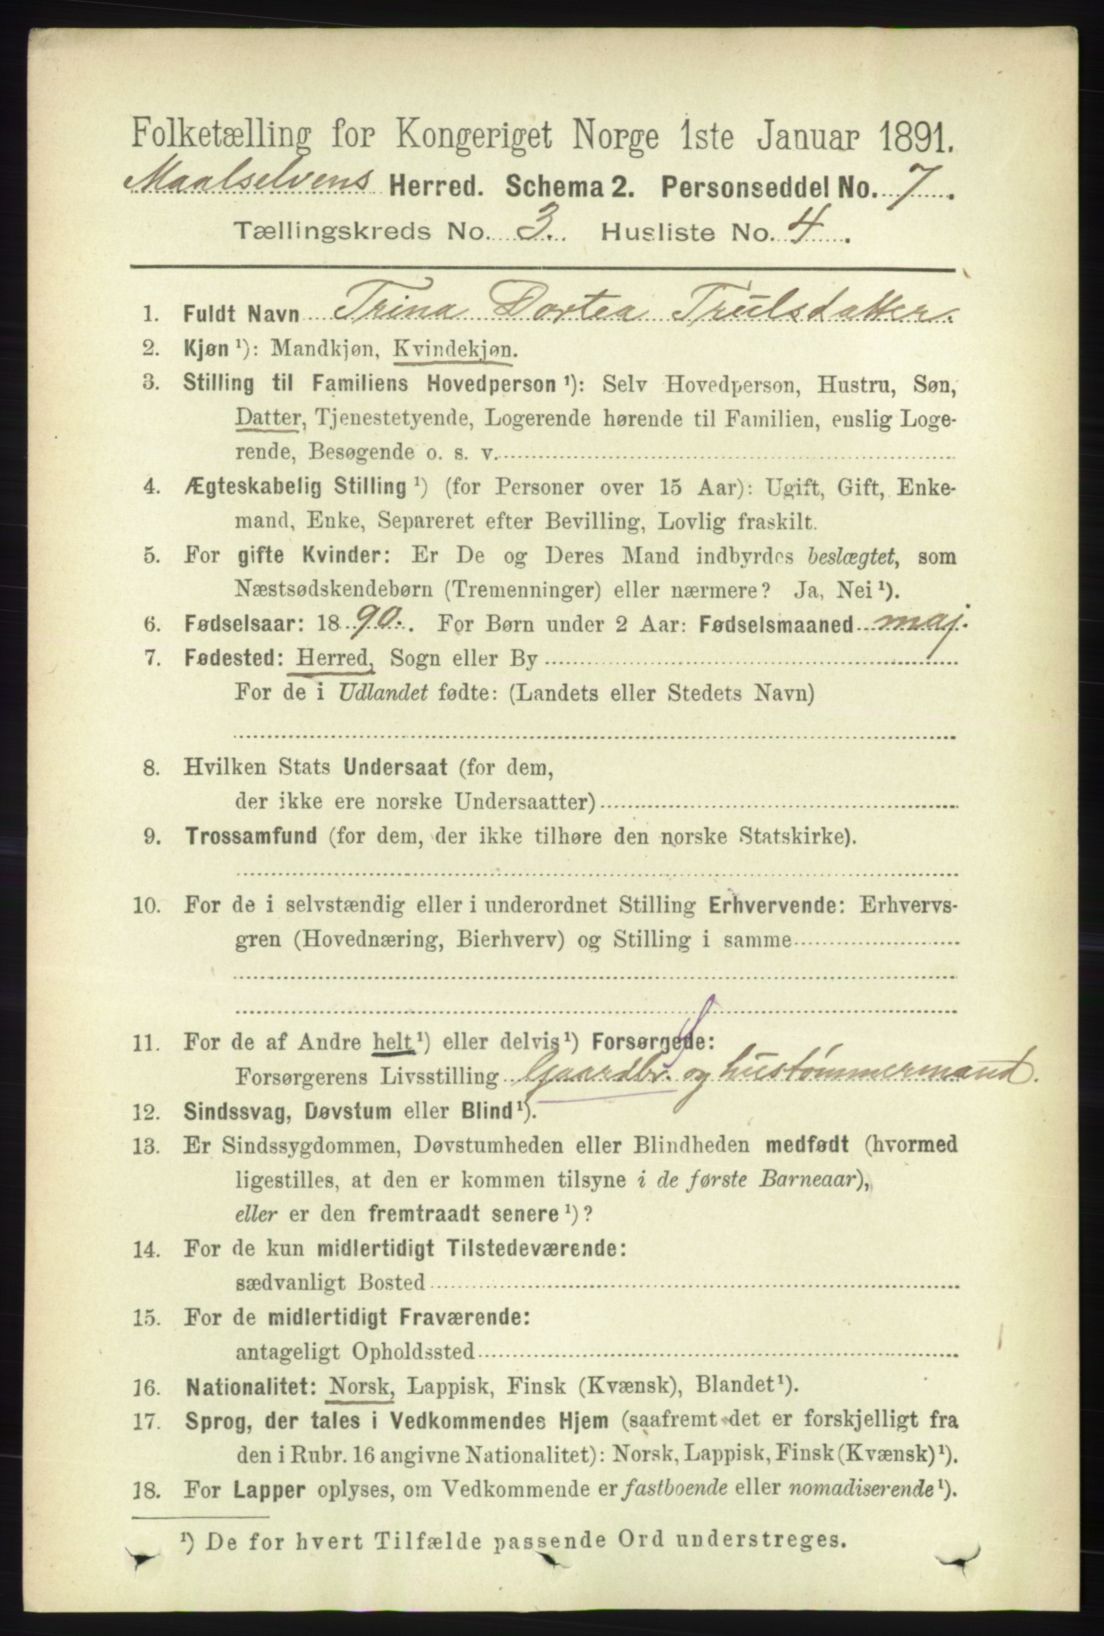 Folketælling for Kongeriget Norge 1ste Januar 1891.
Maalselvens Herred. Schema 2. Personseddel No. 7.
Tællingskreds No. 3. Husliste No. 4.
1. Fuldt Navn Trina Dortea Trulsdatter.
2. Kjøn ¹): Mandkjøn, Kvindekjøn.
3. Stilling til Familiens Hovedperson ¹): Selv Hovedperson, Hustru, Søn,
Datter, Tjenestetyende, Logerende hørende til Familien, enslig Loge-
rende, Besøgende o. s. v.
4. Ægteskabelig Stilling ¹) (for Personer over 15 Aar): Ugift, Gift, Enke-
mand, Enke, Separeret efter Bevilling, Lovlig fraskilt.
5. For gifte Kvinder: Er De og Deres Mand indbyrdes beslægtet, som
Næstsødskendebørn (Tremenninger) eller nærmere? Ja, Nei ¹).
6. Fødselsaar: 1890. For Børn under 2 Aar: Fødselsmaaned maj.
7. Fødested: Herred, Sogn eller By
For de i Udlandet fødte: (Landets eller Stedets Navn)
8. Hvilken Stats Undersaat (for dem,
der ikke ere norske Undersaatter)
9. Trossamfund (for dem, der ikke tilhøre den norske Statskirke).
10. For de i selvstændig eller i underordnet Stilling Erhvervende: Erhvervs-
gren (Hovednæring, Bierhverv) og Stilling i samme
11. For de af Andre helt ¹) eller delvis ¹) Forsørgede:
Forsørgerens Livsstilling Gaardbr. og hustømmermand.
12. Sindssvag, Døvstum eller Blind ¹).
13. Er Sindssygdommen, Døvstumheden eller Blindheden medfødt (hvormed
ligestilles, at den er kommen tilsyne i de første Barneaar),
eller er den fremtraadt senere ¹)?
14. For de kun midlertidigt Tilstedeværende:
sædvanligt Bosted
15. For de midlertidigt Fraværende:
antageligt Opholdssted
16. Nationalitet: Norsk, Lappisk, Finsk (Kvænsk), Blandet ¹).
17. Sprog, der tales i Vedkommendes Hjem (saafremt det er forskjelligt fra
den i Rubr. 16 angivne Nationalitet): Norsk, Lappisk, Finsk (Kvænsk) ¹).
18. For Lapper oplyses, om Vedkommende er fastboende eller nomadiserende ¹).
¹) De for hvert Tilfælde passende Ord understreges.